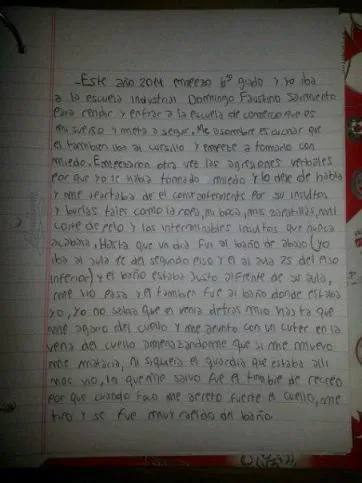 -Este año 2014 empezo 6to grado y yo iba
a la escuela industrial Domingo Faustino Sarmiento
para rendir y entrar a la escuela de comercio que es
mi sueño y meta a seguir. Me asombre escuchar que
el tambien iba al cursillo y empece a tomarlo con
miedo. Empezaron otra vez las agresiones verbales
por que yo le habia tomado miedo y lo deje de habla
y me apartaba de el constantemente por su insultos
y burlas tales como la ropa, mi boca, mis zapatillas, mi
corte de pelo y las interminables insultos que nunca
acababa, Hasta que un dia fui al baño de abajo (yo
iba al aula 1c del segundo piso y el al aula 25 del piso
inferior) y el baño estaba justo alfrente de su aula,
me vio pasar y el tambien fue al baño donde estaba
yo, yo no sabia que en venia detras mio hasta que
me agarro del cuello y me apunto con un cuter en la
vena del cuello amenazandome que si me muevo
me mataria, Ni siquiera el guardia que estaba alli
nos vio, lo que me salvo fue el timbre de recreo
por que cuando toco me apreto fuerte el cuello, me
tiro y se fue muy rapido del baño.